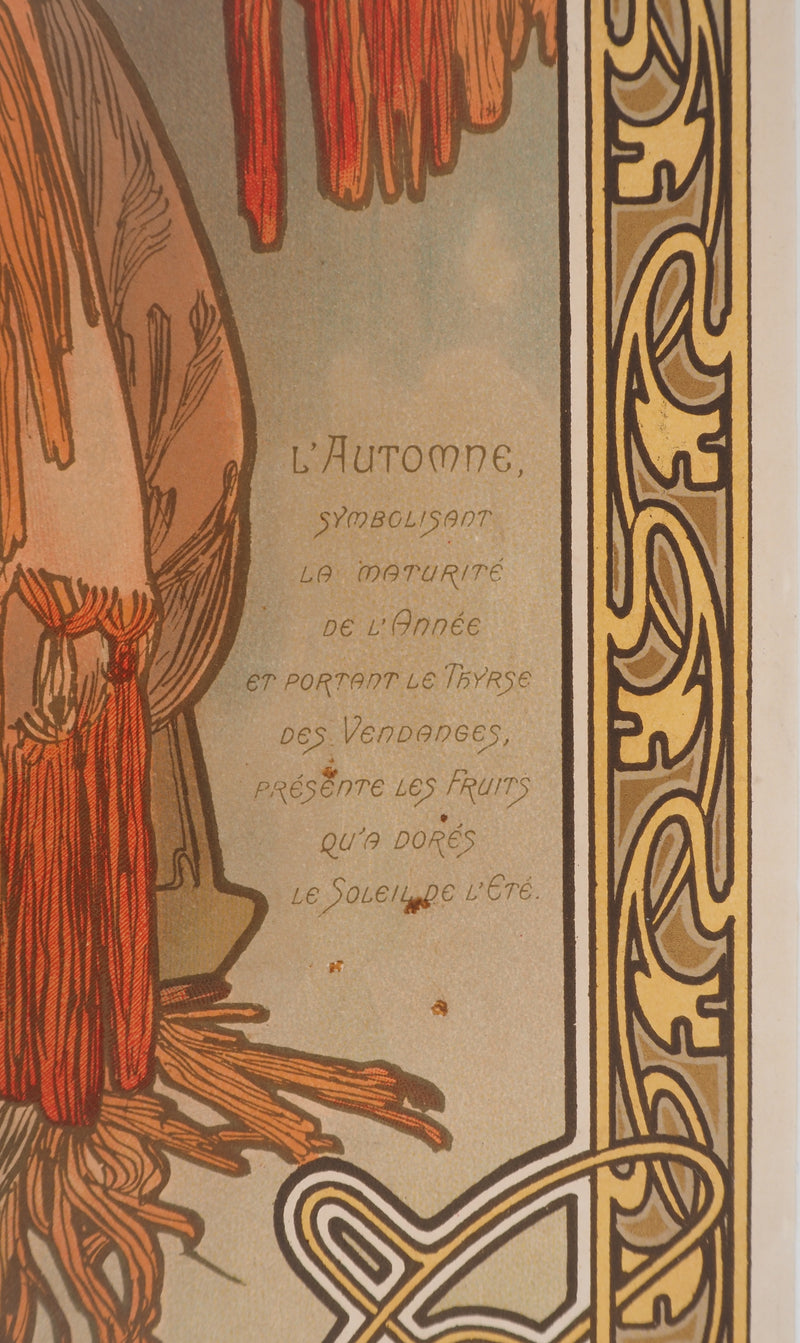 L'Automne,
symbolisant
la maturité
de l'Année
et portant le Thyrse
des Vendanges,
présente les Fruits
qu'a dorés
le Soleil de l'Eté.